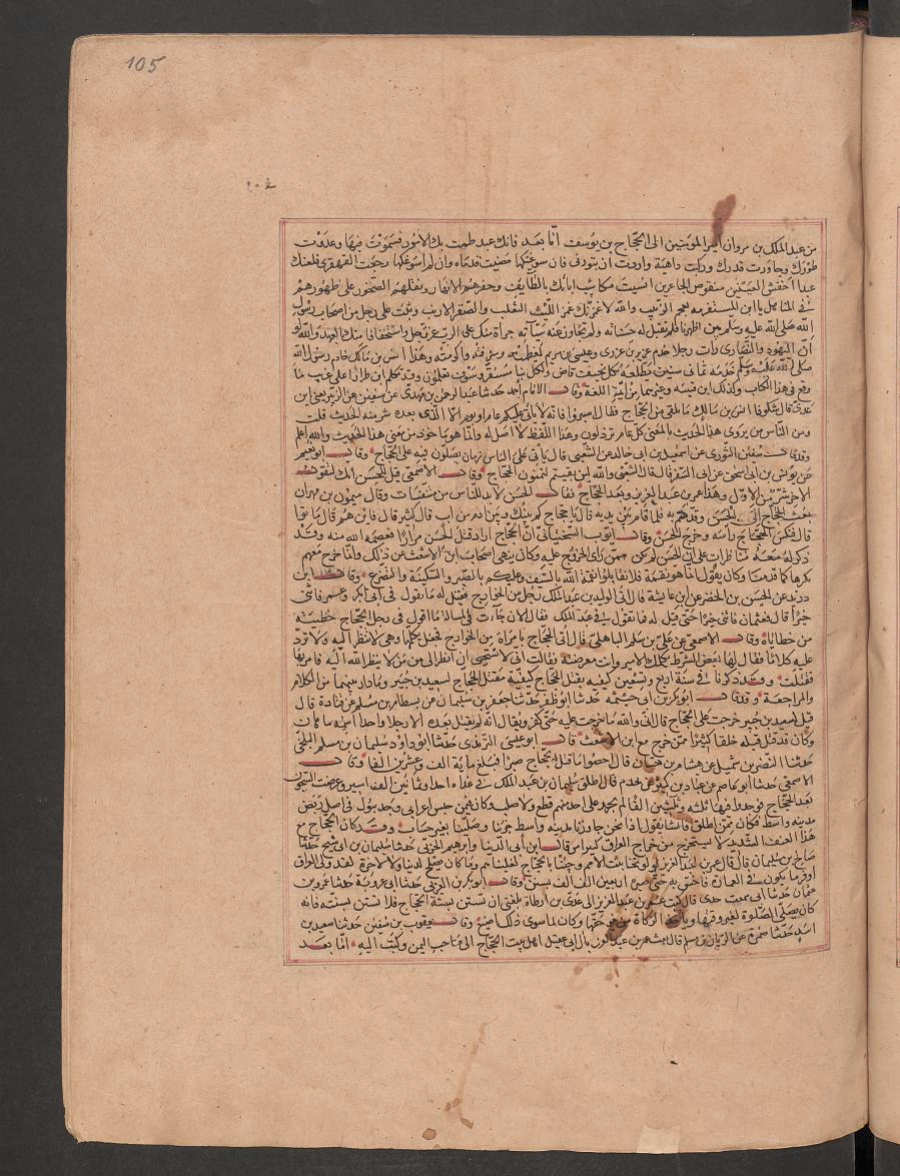 105
من عبد الملك بن مروان أمير المؤمنين الى الحجاج بن يوسف أما بعد فانك عبد طمت بك الامور فسموت فيها وعدوت
طورك وجاوزت قدرك وركبت داهية واردت ان تبورنى فان سوغتكها مضيت قدما وان لم اسوغكها رجعت القهقرى فلعنك
عبدا اخفش العينين منقوص الجاعرتين انسيت مكاسب ابائك بالطايف وحفرهم الابار ونقلهم الصخور على ظهورهم
فى المناهل يا ابن المستفرمة بعجم الزبيب والله لاغمزنك غمز الليث الثعلب والصقر الارنب وثبت على رجل من اصحاب رسول
الله صلى الله عليه وسلم بين اظهرنا فلم تقبل له حسناته ولم تجاوز عنه سيآته جراة منك على الرب عز وجل واستخفافا منك بالعهد والله لو
ان اليهود والنصارى رات رجلا خدم عزير بن عزرى وعيسى بن مريم لعظمته وشرفته واكرمته وهذا انس بن مالك خادم رسول الله
صلى الله عليه وسلم خدمه ثمانى سنين
وقع فى هذا الكتاب وكذلك ابن قتيبة وغيرهما من ايمة اللغة وقال الامام احمد حدثنا عبد الرحمن بن مهدى عن سفين عن الزبير يعنى ابن
عدى قال شكونا الى انس بن مالك ما نلقى من الحجاج فقال اصبروا فانه لا ياتى عليكم عام او يوم الا الذى بعده شر منه الحديث قلت
ومن الناس من يروى هذا الحديث بالمعنى كل عام ترذلون وهذا اللفظ لا اصل له وانما هو ماخوذ من معنى هذا الحديث والله اعلم
وقال سفين الثورى عن اسمعيل بن ابى خالد عن الشعبى قال ياتى على الناس زمان يصلون فيه على الحجاج وقال ابو نعيم
عن يونس بن ابى اسحق عن ابى السفر قال قال الشعبى والله لين بقيتم لتمنون الحجاج وقال الاصمعى قيل للحسن انك لتقول
الاخر شر من الاول وهذا عمر بن عبد العزيز بعد الحجاج فقال الحسن لا بد للناس من تنفيسات وقال ميمون بن مهران
بعث الحجاج الى الحسن وقد هم به فلما قام بين يديه قال يا حجاج كم بينك وبين ادم من اب قال كثير قال فاين هم قال ماتوا
قال فنكس الحجاج راسه وخرج الحسن وقال ايوب السختيانى ان الحجاج اراد قتل الحسن مرارا فعصمه الله منه وقد
ذكر له معه مناظرات على ان الحسن لم يكن ممن راى الخروج عليه وكان ينهى اصحاب ابن الاشعث عن ذلك وانما خرج معهم
مكرها كما قدمنا وكان يقول انما هو نقمة فلا تقابلوا نقمة الله بالسيف وعليكم بالصبر والسكينة والتضرع وقال ابن
دريد عن الحسن بن الخضر عن ابن عايشة قال اتى الوليد بن عبد الملك رجل من الخوارج فقيل له ما تقول فى ابى بكر وعمر فاثنى
خيرا قال فعثمان فاثنى خيرا حتى قيل له فما تقول فى عبد الملك فقال الان جاءت المسالة ما اقول فى رجل الحجاج خطيئة
من خطاياه وقال الاصمعى عن على بن سلم الباهلى قال اتى الحجاج بامراة من الخوارج فجعل يكلمها وهى لا تنظر اليه ولا ترد
عليه كلاما فقال لها بعض الشرط يكلمك الامير وانت معرضة فقالت انى لاستحيى ان انظر الى من لا ينظر الله اليه فامر بها
فقتلت وقد ذكرنا فى سنة اربع وتسعين كيفية مقتل الحجاج لسعيد بن جبير وما دار بينهما من الكلام
والمراجعة وقد قال ابو بكر بن ابى خيثمة حدثنا ابو ظفر حدثنا جعفر بن سليمان عن بسطام بن مسلم عن قتادة قال
قيل لسعيد بن جبير خرجت على الحجاج قال انى والله ما خرجت عليه حتى كفر ويقال انه لم يقتل بعده الا رجلا واحدا اسمه ماهان
وكان قد قتل قبله خلقا كثيرا ممن خرج مع ابن الاشعث قال ابو عيسى الترمذى حدثنا ابو داود سليمان بن سلم البلخى
حدثنا النضر بن شميل عن هشام بن حسان قال احصوا ما قتل الحجاج صبرا فبلغ ماية الف وعشرين الفا وقال
الاصمعى حدثنا ابو عاصم عن عباد بن كثير عن قحدم قال اطلق سليمان بن عبد الملك فى غداة احدا وثمانين الف اسير وعرضت السجون
بعد الحجاج فوجدوا فيها ثلثة وثلثين الفا لم يجب على احد منهم قطع ولا صلب وكان فيمن حبس اعرابى وجد يبول فى اصل ربض
مدينة واسط فكان ممن اطلق فانشا يقول اذا نحن جاوزنا مدينة واسط خرينا وصلينا بغير حساب وقد كان الحجاج مع
هذا العنف الشديد لا يستخرج من خراج العراق كبير امر قال ابن ابى الدنيا وابرهيم الحربى حدثنا سليمان بن ابى شيخ حدثنا
صالح بن سليمان قال قال عمر بن عبد العزيز لو تخابثت الامم وجئنا بالحجاج لغلبناهم وما كان يصلح لدنيا ولا لاخرة لقد ولى العراق
اوفر ما يكون فى العمارة فاخس به حتى صيره اربعين الف الف
عثمان حدثنا ابى سمعت جدى قال كتب عمر بن عبد العزيز الى عدى بن ارطاة بلغنى ان تستن بسنة الحجاج فلا تستن بسنته فانه
كان يصلى الصلوة لغير وقتها وياخذ الزكاة من غير حقها وكان لما سوى ذلك اضيع وقال يعقوب بن سفين حدثنا سعيد بن
اسد حدثنا ضمرة عن الريان بن مسلم قال بعث عمر بن عبد العزيز بال ابى عقيل اهل بيت الحجاج الى صاحب اليمن وكتب اليه اما بعد